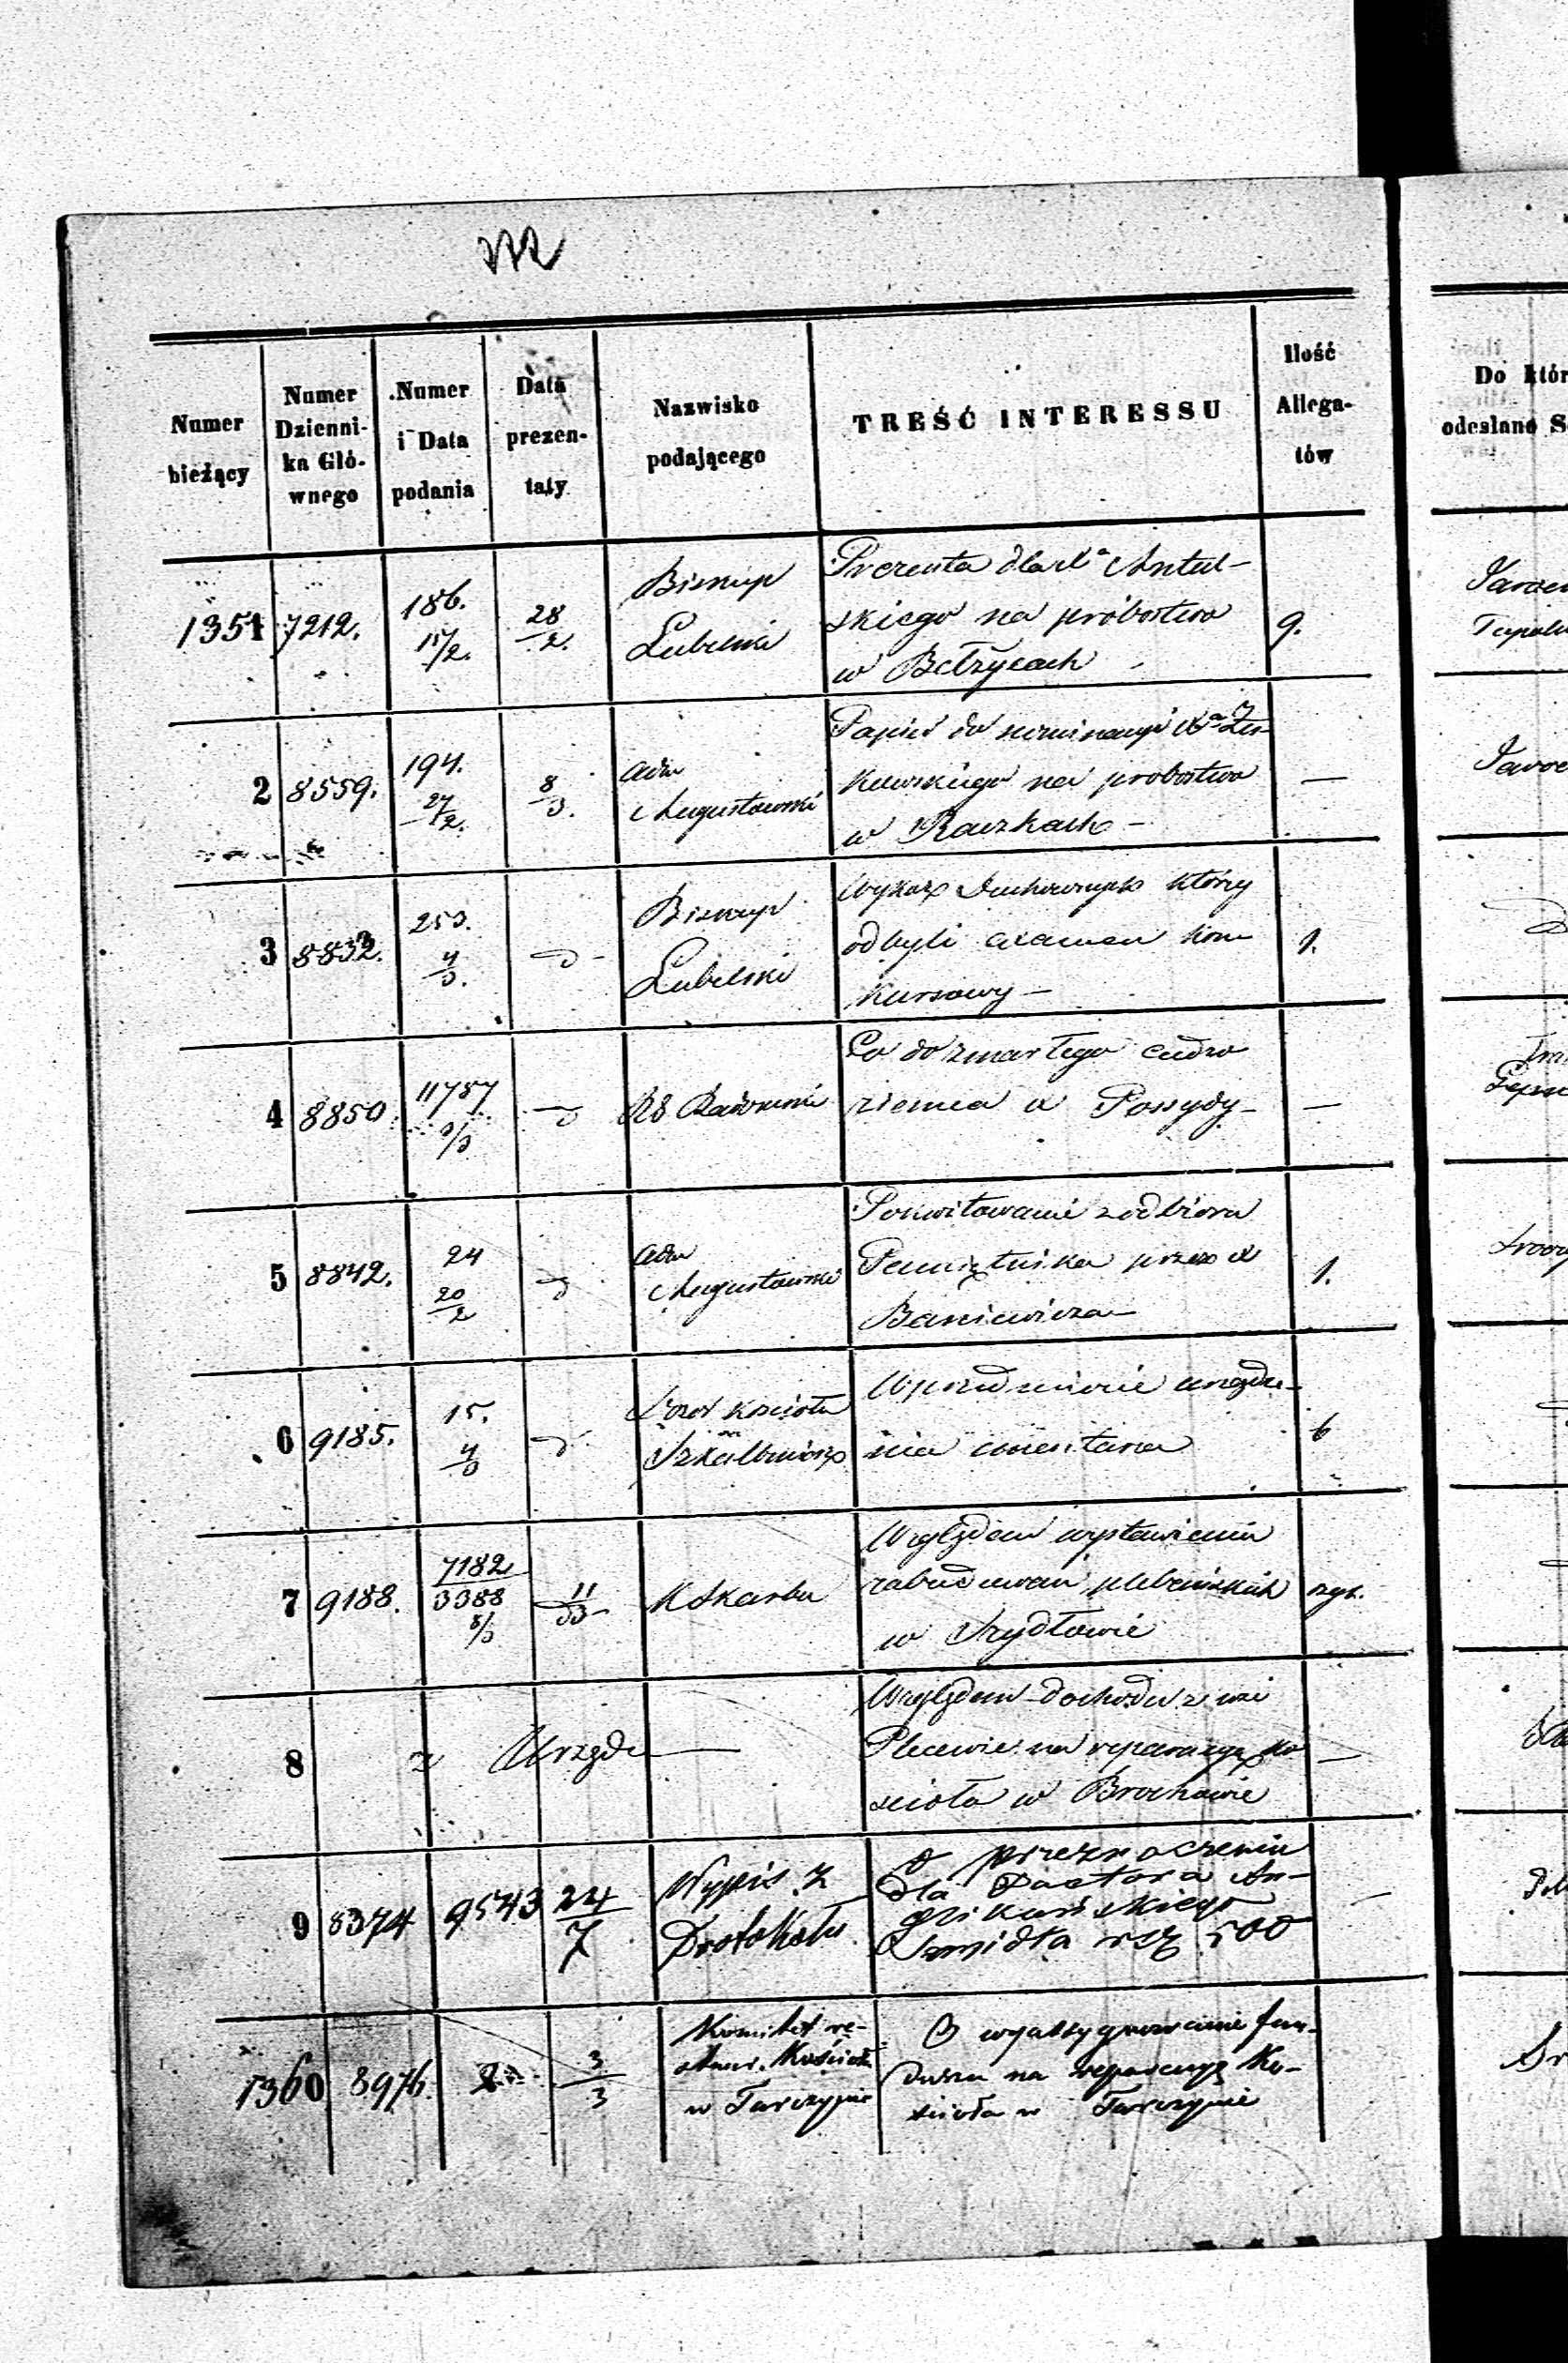 Numer bieżący
Numer Dzienni-ka Głó-wnego
Numer i Data podania
Data prezen-taty
Nazwisko podającego
TREŚĆ INTERESSU
Ilość Allega-tów
Do któr
odesłano S
1351 7212. 186. 17/2. 28/2. Biskup Lubelski
Prezenta dla Xa Antul-
skiego na próbostwo
w Bełżycach
9.
2 8559. 194. 27/2. 8/3. Adm Augustowski
Papier do nominacyi Xa
na probostwo
w Raczkach
—
3 8832. 253. 4/3. Biskup Lubelski
Wykaz Duchownych którzy
odbyli examen kon
kursowy —
1.
4 8850. 11787 RG Radomski
Co do zmarłego cudzo
ziemca
—
5 8842. 24 20/2 Adm Augustowski
Pokwitowanie z odbioru
Pamiętnika przez X
Baniewicza —
1.
6 9185. 15. 4/3 Dozór Kościoła Szkalbmierz
W przedmiocie urządze-
nia cmentarza
6
7 9188. 7182/3388 8/3 11/3 K Skarbu
Względem wystawienia
zabudowań plebańskich
w Szydłowie
8 z Urzędu —
Względem dochodu z wsi
Plecewie na reparacyę ko
scioła w Brochowie
—
9 8374 9543 24/7 Wypis z Protokołu
O przeznaczeniu
dla Pastora An-
glikańskiego
Szmidta rsr 500
—
1360 8976 3/3 Komitet re-
Kościoła
w Tarczynie
O wyassygnowanie fun-
duszu na reparacyę Ko-
ścioła w Tarczynie